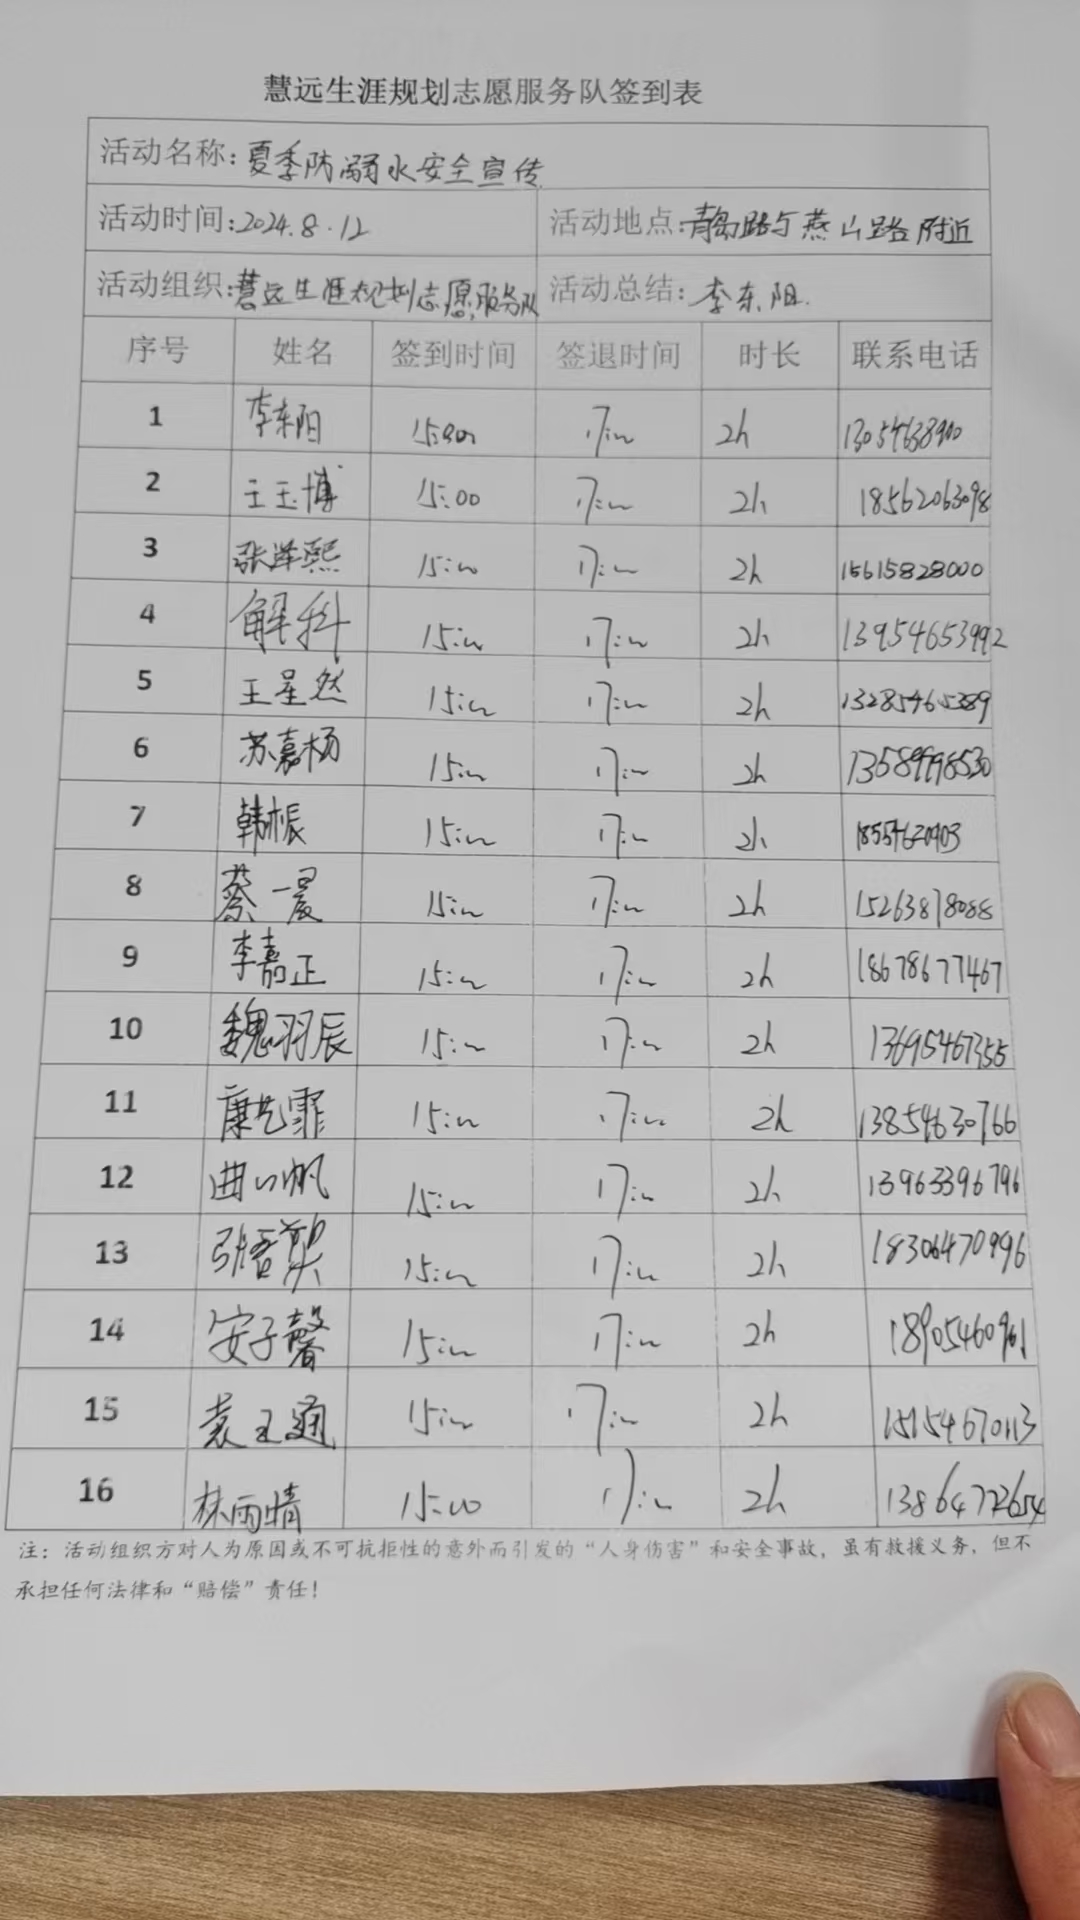 慧远生涯规划志愿服务队签到表
活动名称：夏季防溺水安全宣传
活动时间：2024.8.12 活动地点：青岛路与燕山路附近
活动组织：慧远生涯规划志愿服务队 活动总结：李东阳.
序号 姓名 签到时间 签退时间 时长 联系电话
1 李东阳 15:00 17:00 2h 13054638900
2 王玉博 15:00 17:00 2h 18562063098
3 张泽熙 15:00 17:00 2h 15615828000
4 解科 15:00 17:00 2h 13954653992
5 王星然 15:00 17:00 2h 13285465389
6 苏嘉杨 15:00 17:00 2h 13589998530
7 韩枨 15:00 17:00 2h
8 蔡一晨 15:00 17:00 2h 15263878088
9 李嘉正 15:00 17:00 2h 18678677467
10 魏羽辰 15:00 17:00 2h 13695467355
11 康艺霏 15:00 17:00 2h 13854630766
12 曲以帆 15:00 17:00 2h 13963396796
13 15:00 17:00 2h 18306470996
14 安子馨 15:00 17:00 2h 18905460961
15 袁玉通 15:00 17:00 2h 15154670113
16 林雨晴 15:00 17:00 2h 13864772654
注：活动组织方对人为原因或不可抗拒性的意外而引发的“人身伤害”和安全事故，虽有救援义务，但不
承担任何法律和“赔偿”责任！